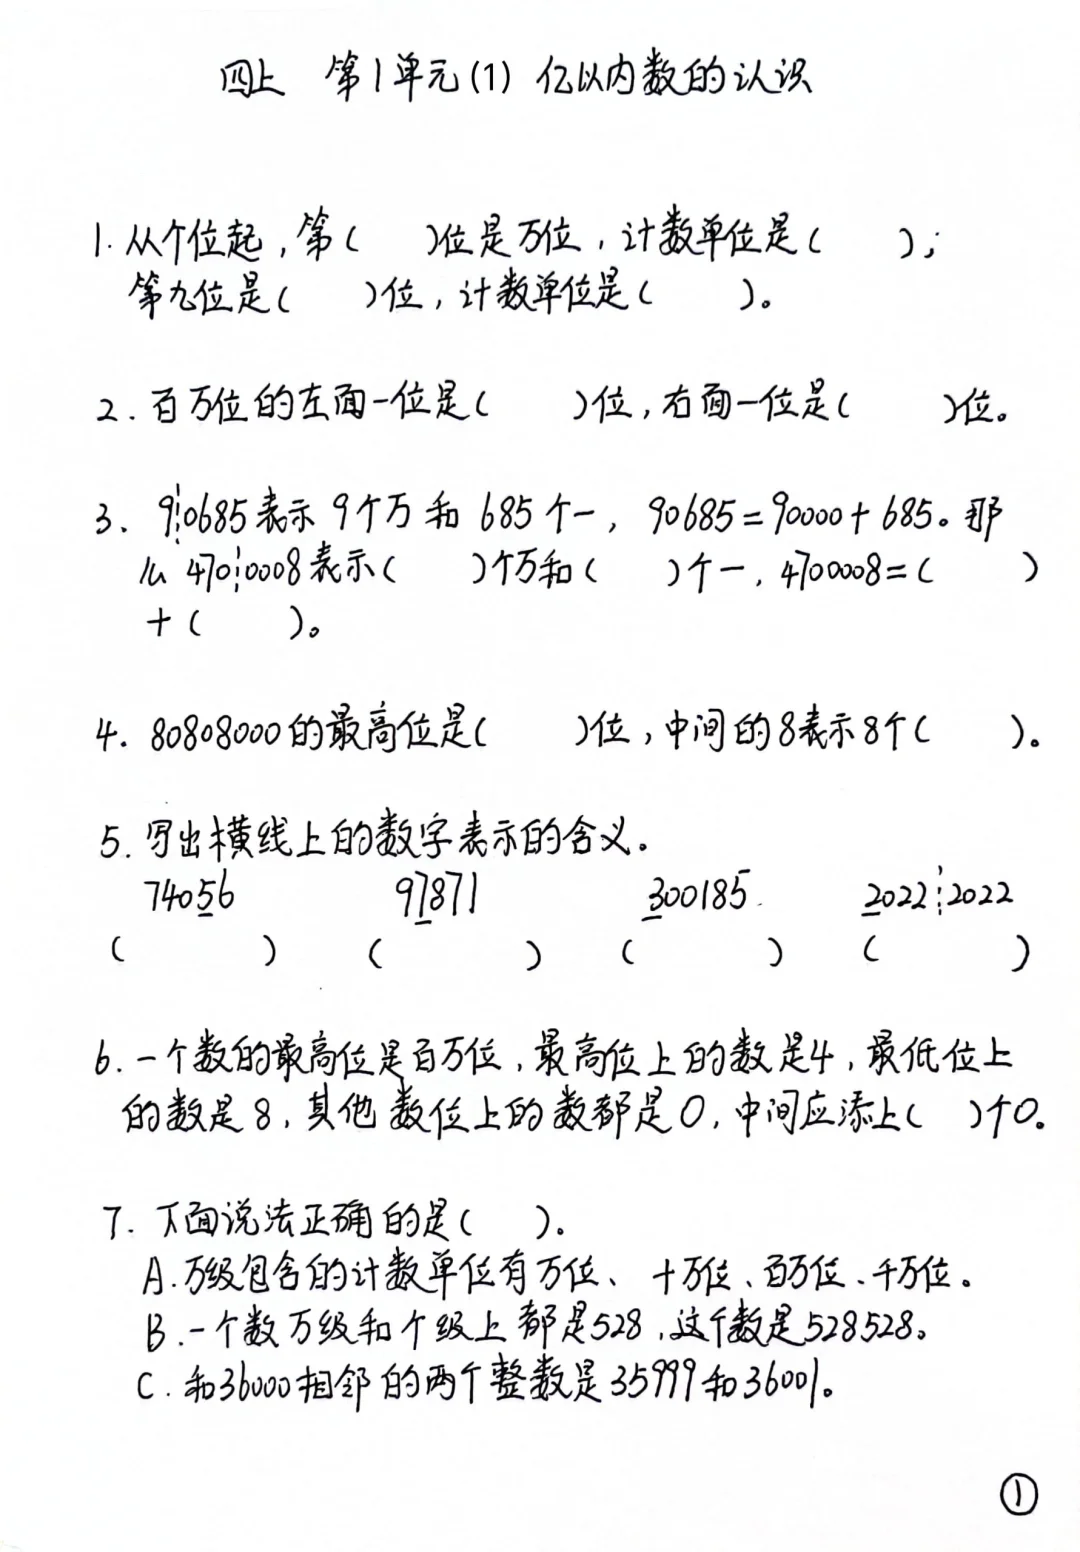 四上 第1单元(1) 亿以内数的认识
1. 从个位起,第( )位是万位,计数单位是( );
第九位是( )位,计数单位是( )。
2. 百万位的左面一位是( )位,右面一位是( )位。
3. 9¦0685表示9个万和685个一,90685=90000+685。那
么470¦0008表示( )个万和( )个一,4700008=( )
+( )。
4. 80808000的最高位是( )位,中间的8表示8个( )。
5. 写出横线上的数字表示的含义。
74056 97871 300185 2022¦2022
( ) ( ) ( ) ( )
6. 一个数的最高位是百万位,最高位上的数是4,最低位上
的数是8,其他数位上的数都是0,中间应添上( )个0。
7. 下面说法正确的是( )。
A. 万级包含的计数单位有万位、十万位、百万位、千万位。
B. 一个数万级和个级上都是528,这个数是528528。
C. 和36000相邻的两个整数是35999和36001。
①